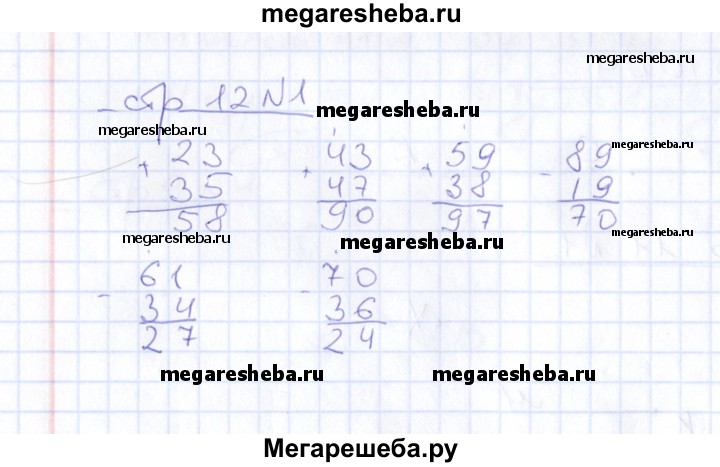 megaresheba.ru
megaresheba.ru
стр 12 N1
megaresheba.ru
megaresheba.ru
megaresheba.ru
+ 23 + 43 + 59 - 89
35 47 38 19
58 90 97 70
megaresheba.ru
megaresheba.ru
megaresheba.ru
- 61 - 70
34 36
27 34
megaresheba.ru
megaresheba.ru
Мегарешеба.ру